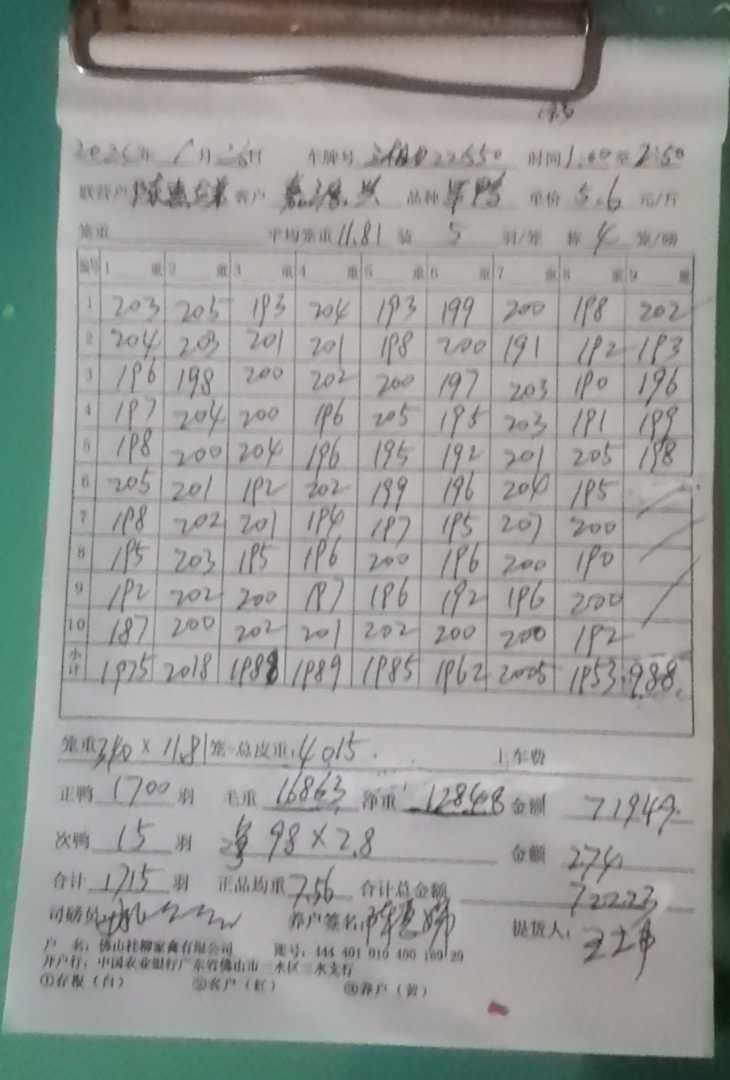 月 日 车牌号 22550 时间1:00至2:50
联营户 客户 品种 单价 5.6 元/斤
笼重 平均笼重11.81 装 5 羽/笼 称 4 笼/磅
编号 1 重 2 重 3 重 4 重 5 重 6 重 7 重 8 重 9 重
1 203 205 193 204 193 199 200 198 202
2 204 203 201 201 198 200 191 192 193
3 196 198 200 202 200 197 203 190 196
4 197 204 200 196 205 195 203 191 199
5 198 200 204 196 195 192 201 205 198
6 205 201 192 202 199 196 204 195
7 198 202 201 194 197 195 207 200
8 195 203 195 196 200 196 200 190
9 192 202 200 197 196 192 196 200
10 187 200 202 201 202 200 200 192
小计 1975 2018 1988 1989 1985 1962 2005 1953 988
笼重340×11.81笼=总皮重:4015. 上车费
正鸭 1700 羽 毛重 16863 净重 12848 金额 71949
次鸭 15 羽 98×2.8 金额 274
合计 1715 羽 正品均重 7.56 合计总金额 72223
司磅员 养户签名: 提货人:
户 名:佛山桂柳家禽有限公司 账号:444 401 010 400 189 29
开户行:中国农业银行广东省佛山市三水区三水支行
①存根(白) ②客户(红) ③养户(黄)